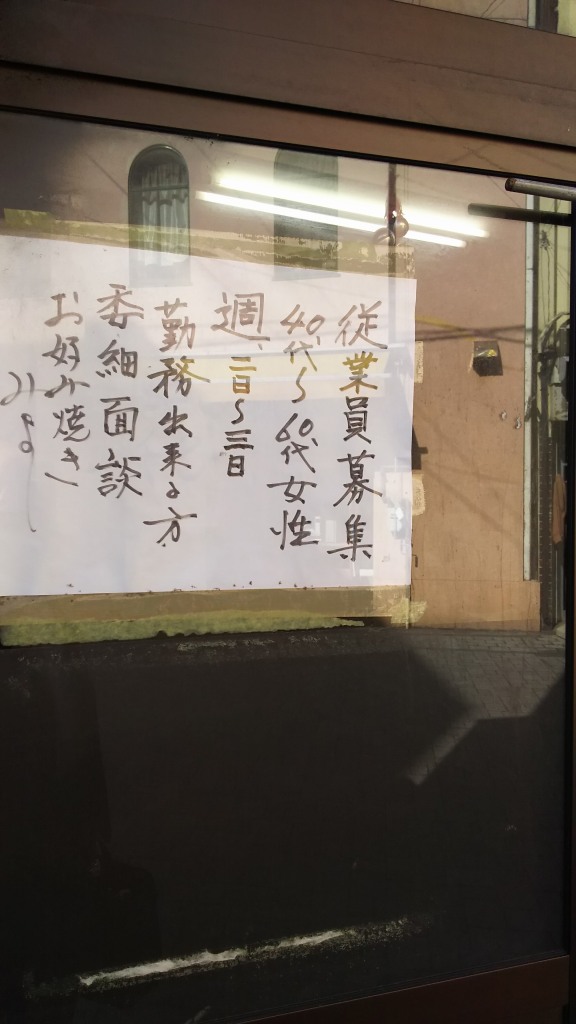 従業員募集
40代〜60代女性
週、二日〜三日
勤務出来る方
委細面談
お好み焼き
みよし